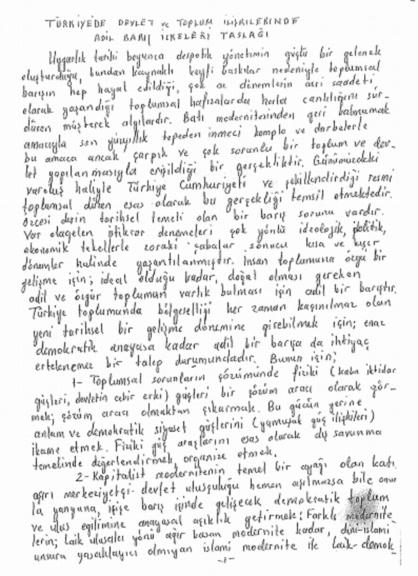 TÜRKİYE'DE DEVLET ve TOPLUM İLİŞKİLERİNDE
ADİL BARIŞ İLKELERİ TASLAĞI
Uygarlık tarihi boyunca despotik yönetimin güçlü bir gelenek
oluşturduğu, bundan kaynaklı keyfi baskılar nedeniyle toplumsal
barışın hep hayal edildiği, çok az dönemlerin asrı saadeti
olarak yaşandığı toplumsal hafızalarda hala canlılığını sür-
düren müşterek algılardır. Batı modernitesinden geri kalmamak
amacıyla son yüzyıllık tepeden inmeci komplo ve darbelerle
bu amaca ancak çarpık ve çok sorunlu bir toplum ve dev-
let yapılanmasıyla erişildiği bir gerçekliktir. Günümüzdeki
varoluş haliyle Türkiye Cumhuriyeti ve şekillendirdiği resmi
toplumsal düzen esas olarak bu gerçekliği temsil etmektedir.
Özcesi derin tarihsel temeli olan bir barış sorunu vardır.
Var olagelen istikrar denemeleri çok yönlü ideolojik, politik,
ekonomik tekellerle zoraki çabalar sonucu kısa ve kısır
dönemler halinde yaşantılanmıştır. İnsan toplumuna özgü bir
gelişme için; ideal olduğu kadar, doğal olması gereken
adil ve özgür toplumun varlık bulması için adil bir barıştır.
Türkiye toplumunda bölgeselliği her zaman kaçınılmaz olan
yeni tarihsel bir gelişme dönemine girebilmek için; en az
demokratik anayasa kadar adil bir barışa da ihtiyaç
ertelenemez bir talep durumundadır. Bunun için;
1- Toplumsal sorunların çözümünde fiziki (kaba iktidar
güçleri, devletin cebir erki) güçleri bir çözüm aracı olarak gör-
mek; çözüm aracı olmaktan çıkarmak. Bu gücün yerine
anlam ve demokratik siyaset güçlerini (yumuşak güç ilişkileri)
ikame etmek. Fiziki güç araçlarını esas olarak dış savunma
temelinde değerlendirmek, organize etmek.
2- Kapitalist modernitenin temel bir ayağı olan katı
aşırı merkeziyetçi devlet ulusçuluğu hemen aşılmazsa bile onun-
la yanyana, içiçe barış içinde gelişecek demokratik toplum
ve ulus eğilimine anayasal açıklık getirmek; Farklı modernite-
lerin; laik ulusalcı yönü ağır basan modernite kadar, dini-islami
unsuru yasaklayıcı olmıyan islami modernite ile laik-demok-
-1-